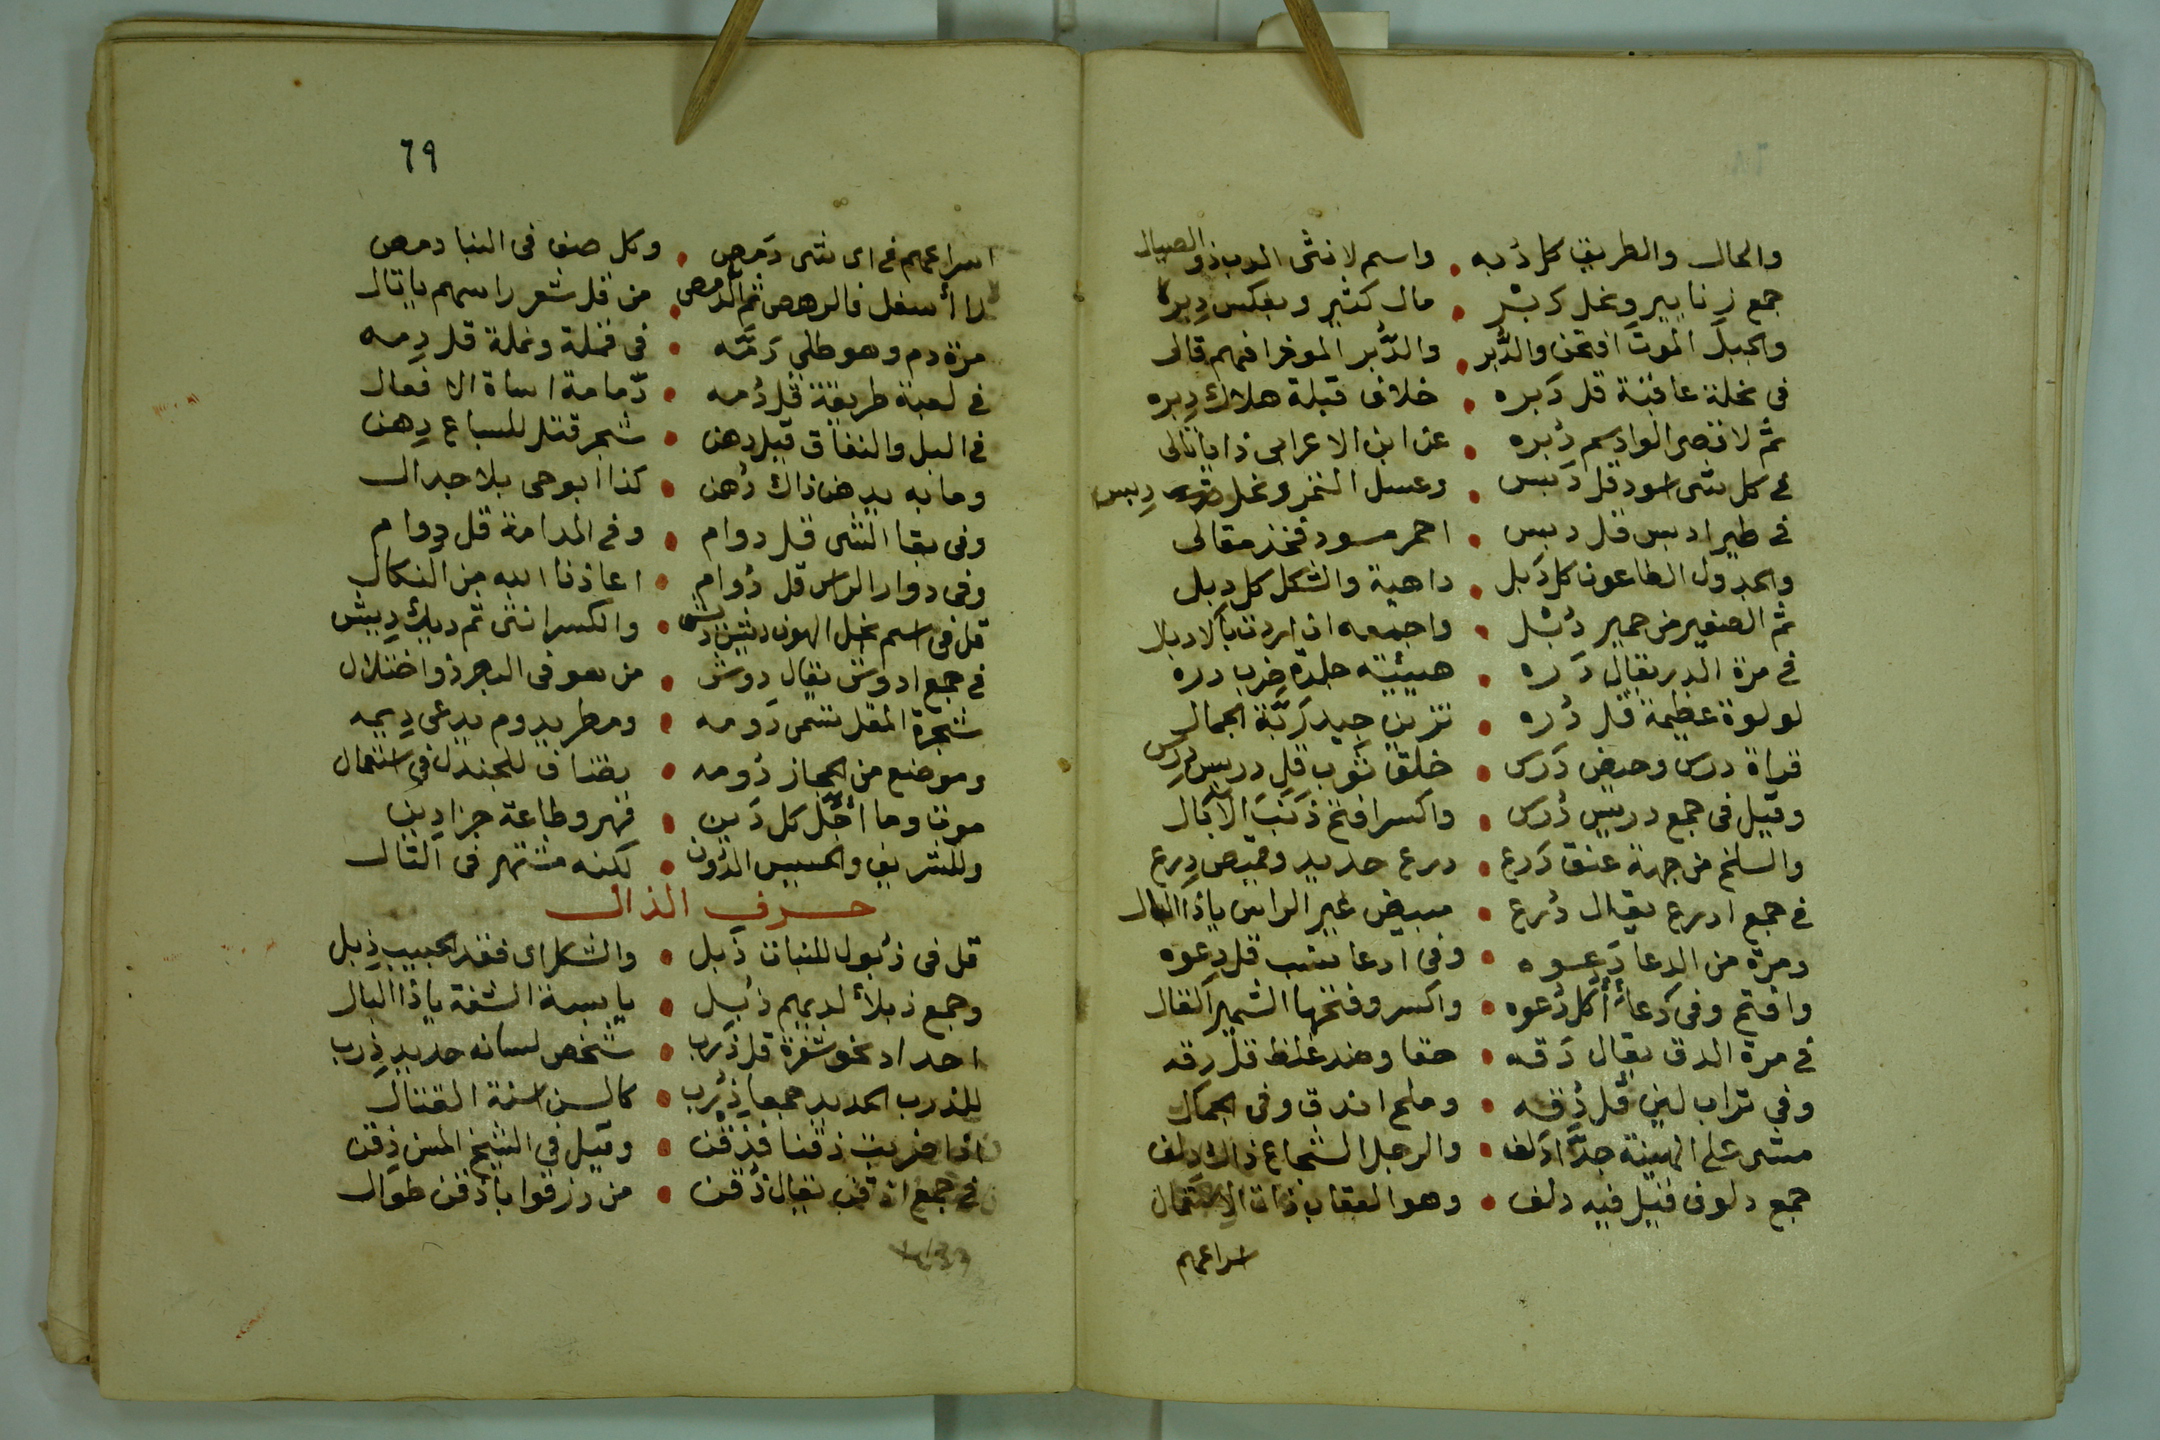 والحال والطريق كل دُبه . واسم لانثى الدب ذو الصيال
جمع زنابير ونحل دَبْر . مال كثير وبعكس دِبر
والجبل الموت افتحن والدُّبر . والدُّبر الموخر افهم قال
فى نخلة عاقبة قل دَبره . خلاف قبلة هلاك دِبره
ثم لانتصر الوا دسم دُبره . عن ابن الاعرابى ذا ياتالى
فى كل شى اسود قل دَبس . وعسل التمر ونحل دِبس
فى طير ادبس قل دبس . احمر مسود فخذ مقالى
والجدول الطاعون كل دَبل . داهية والشكل كل دِبل
ثم الصغير من حمير دُبْل . واجمعه ان اردت بالادبال
فى مرة الدر يقال دَره . هيئيته حلبة ضرب دره
لولوة عظيمة قل دُره . تزين جيد رَبَّة الجمال
قراة درس وحيض دَرس . خلق ثوب قل دريس دِرس
وقيل فى جمع دريس دُرس . واكسر افتح ذَنَبَ الآبال
والسلخ من جهة عنق دَرع . درع حديد وقميص دِرع
فى جمع ادرع يقال دُرع . مبيض غير الراس ياذا البال
ومرة من الدعا دَعوه . وفى ادعا نسب قل دِعوه
وافتح وفى دَعاء أكل دُعوه . واكسر وفتحها الشهير القال
فى مرة الدق يقال دَقه . حقا وضد غلظ قل دِقه
وفى تراب لين قل دُقه . وملح اندق وفى الجمال
مشى على الهينة جدًّا دَلف . والرجل الشجاع ذاك دِلف
جمع دلوف قيل فيه دلف . وهو العقاب ذات الاشتمال
اسراعهم
٦٩
اسراعهم فى اى شى دَمص . وكل صنف فى البنا دمص
اسفل فالرهص ثم الدُّمص . من قل شعر راسهم ياتال
مرة دم وهو طلي دَمَّه . فى قملة ونملة قل دِمه
فى لعبة طريقة قل دُمه . دَمامة اساة الافعال
فى البل والنفاق قيل دهن . شجر قتل للسباع دِهن
وما به يدهن ذاك دُهن . كذا ابوحى بلا جدال
وفى بقا الشى قل دوام . وفى المدامة قل دِوام
وفى دوار الراس قل دُوام . اعاذنا الله من النكال
قل فى اسم نحل . والكسر انثى ثم ديك دِيش
فى جمع ادوش يقال دوش . من هو فى البصر ذو اختلال
شجرة المقل تسمى دَومه . ومطر يدوم يدعى دِيمه
وموضع من الحجاز دُومه . يضاف للجندل فى استعمال
موتا وما اجّل كل دَين . قهر وطاعة جزا دِين
وللشريف والخسيس الدُون . لكنه مشتهر فى التال
حرف الذال
قل فى ذبول للنبات ذَبل . والشكل اى فقد الحبيب ذِبل
وجمع ذبلاء لديهم ذُبل . يابسة الشفة ياذا البال
احداد نحو شفرة قل ذَرب . شخص لسانه حديد ذِرب
للذرب الحديد جمعا ذُرب . كالسن اسنة القتال
اذا ضربت ذقنا فذقن . وقيل فى الشيخ المسن ذِقن
فى جمع اذقن يقال ذُقن . من رزقوا باذقن طوال